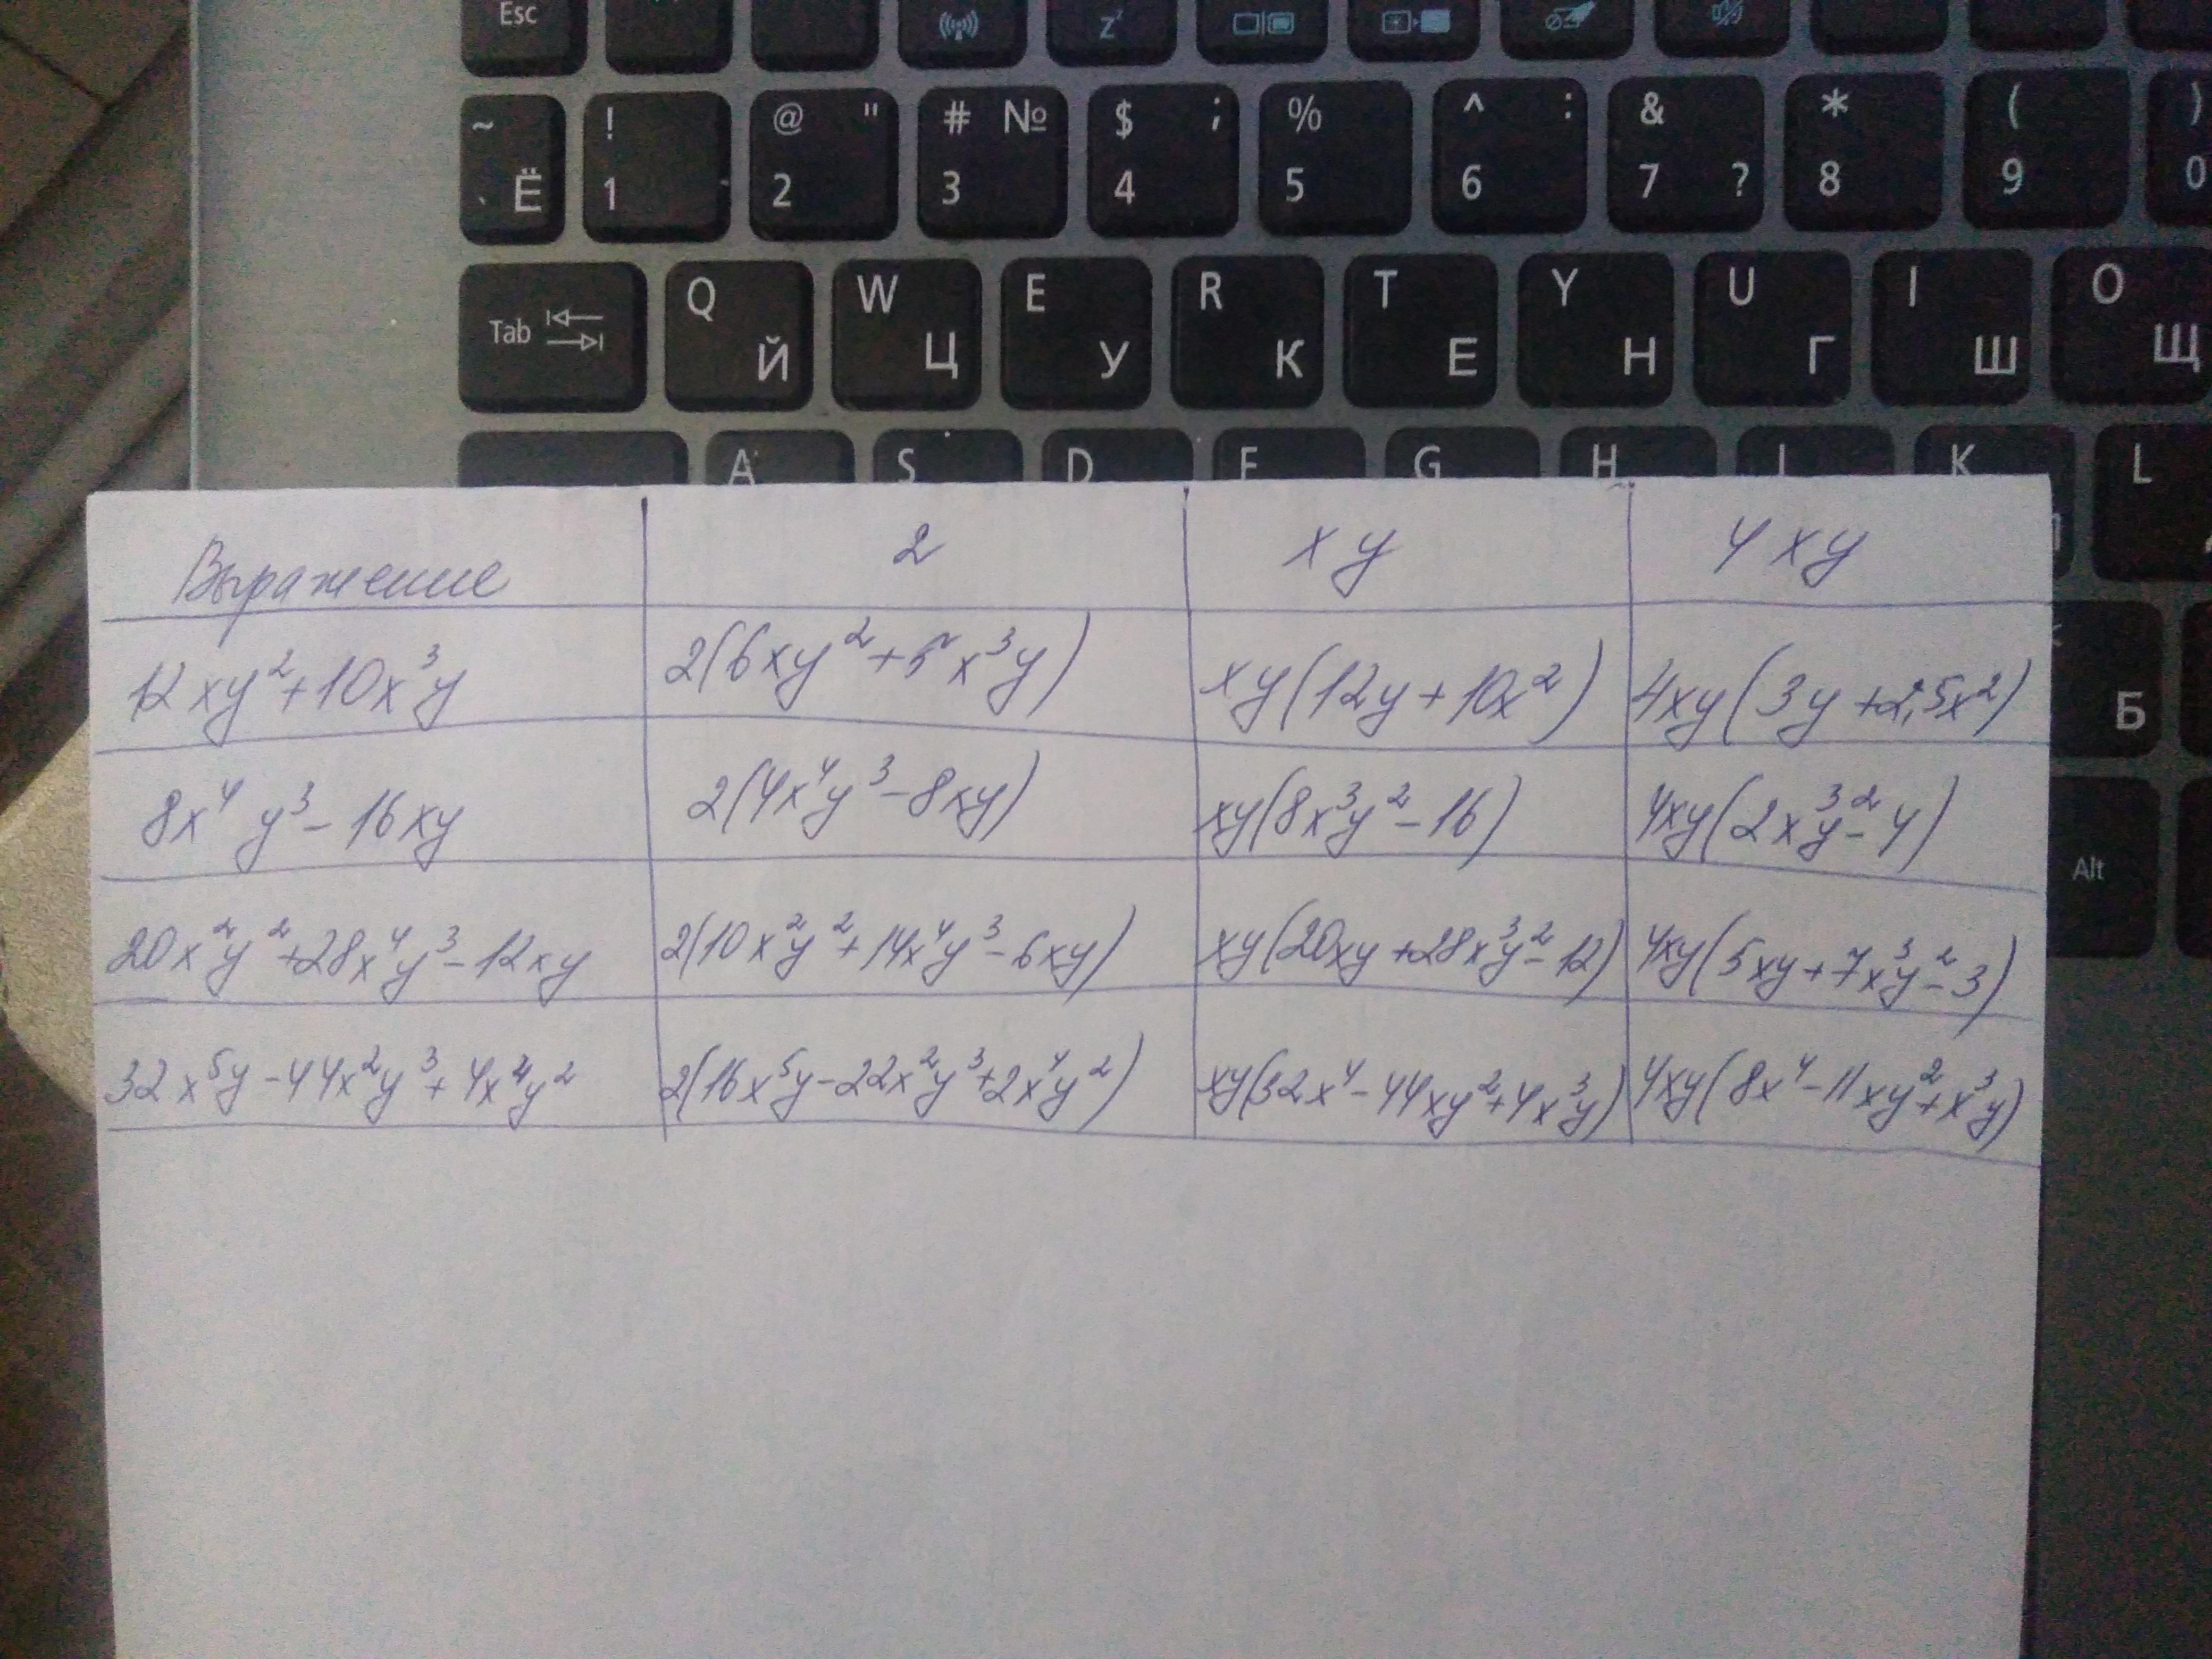 Esc
z z
~ ` Ё ! 1 @ " 2 # № 3 $ ; 4 % 5 ^ : 6 & 7 ? * 8 ( 9 ) 0
Tab Q Й W Ц E У R К T Е Y Н U Г I Ш O Щ
A S D F G H J K L
Б
Alt
Выражение 2 xy 4xy
12xy²+10x³y 2(6xy²+5x³y) xy(12y+10x²) 4xy(3y+2,5x²)
8x⁴y³-16xy 2(4x⁴y³-8xy) xy(8x³y²-16) 4xy(2x³y²-4)
20x²y²+28x⁴y³-12xy 2(10x²y²+14x⁴y³-6xy) xy(20xy+28x³y²-12) 4xy(5xy+7x³y²-3)
32x⁵y-44x²y³+4x⁴y² 2(16x⁵y-22x²y³+2x⁴y²) xy(32x⁴-44xy²+4x³y) 4xy(8x⁴-11xy²+x³y)